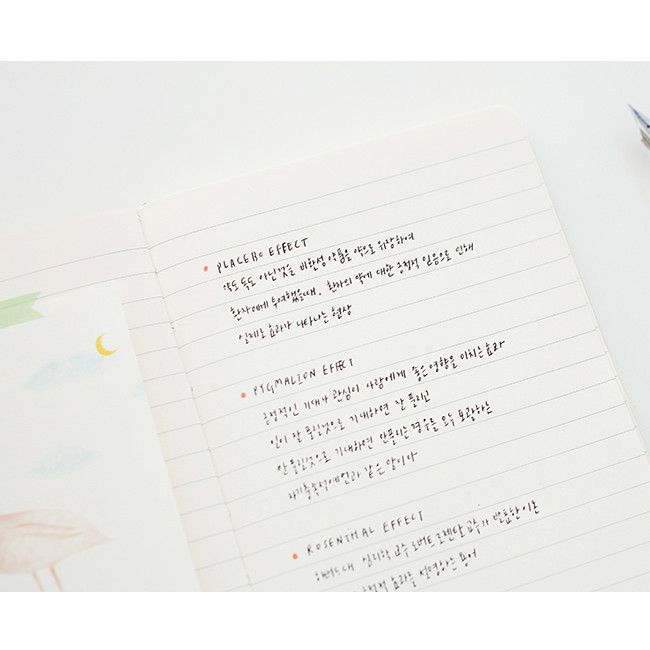 PLACEBO EFFECT
약도 독도 아닌것을 비활성 약품을 약으로 위장하여
환자에게 투여했을때, 환자의 약에 대한 긍정적 믿음으로 인해
실제로 효과가 나타나는 현상
PYGMALION EFFECT
긍정적인 기대나 관심이 사람에게 좋은 영향을 미치는 효과
일이 잘 풀릴것으로 기대하면 잘 풀리고
안 풀릴것으로 기대하면 안풀리는 경우를 모두 포괄하는
자기충족적예언과 같은 말이다
ROSENTHAL EFFECT
하버드대 심리학 교수 로버트 로젠탈 교수가 발표한 이론
긍정적 효과를 설명하는 용어